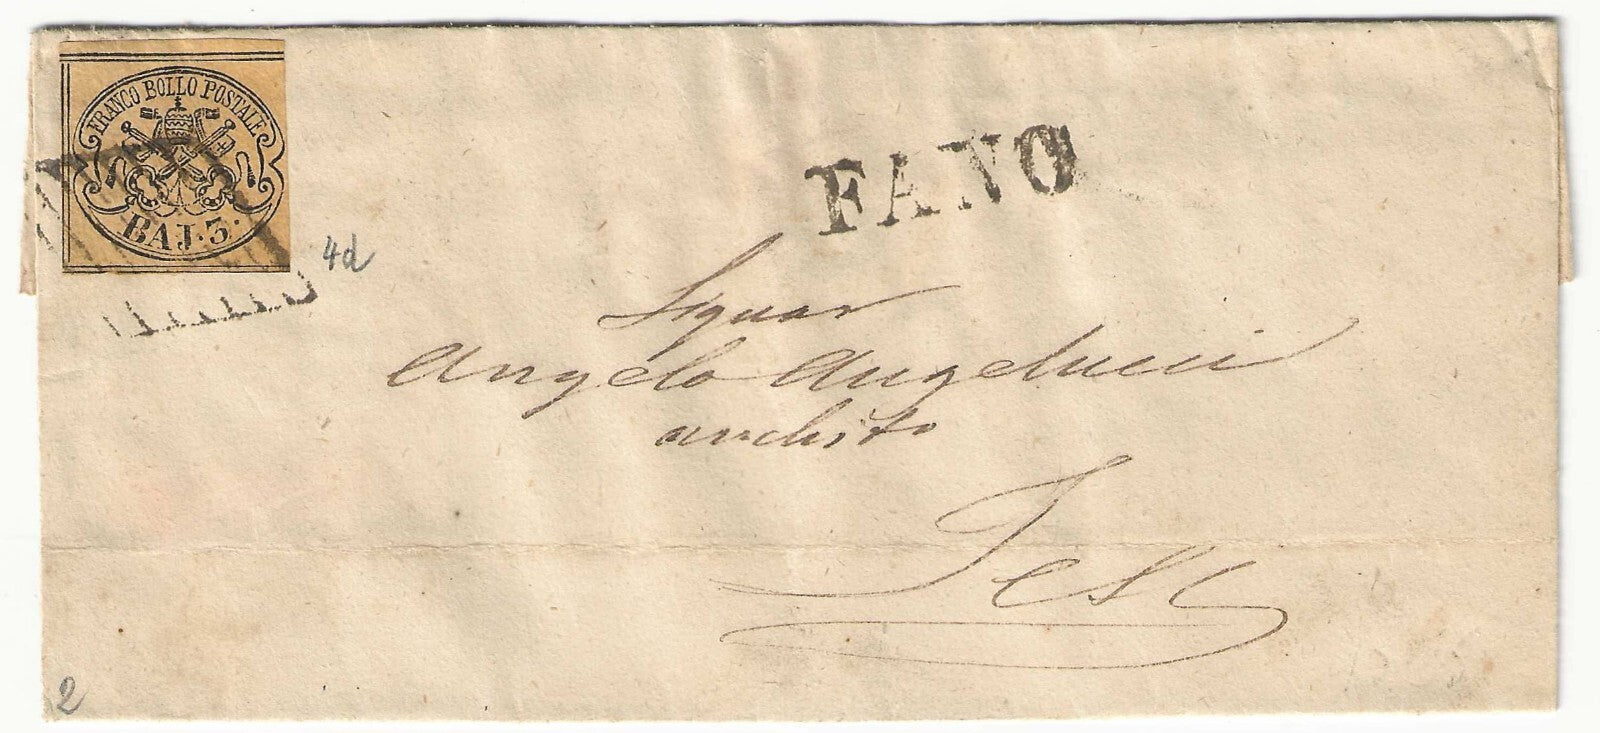 FRANCO BOLLO POSTALE
BAJ. 3.
4d
FANO
Signor
Angelo Angelucci
Jesi
2